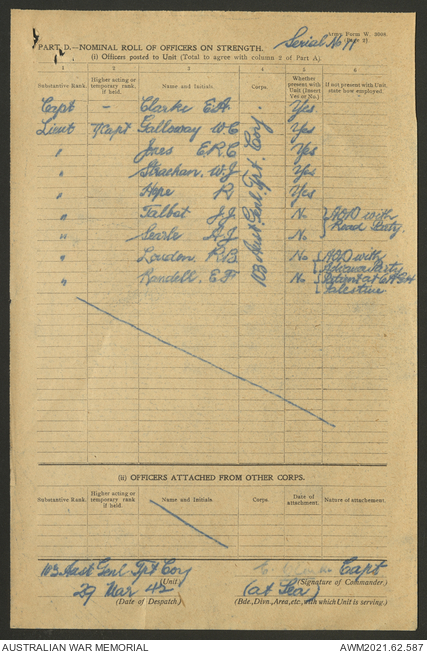 Army Form W. 3008.
(Page 2)
PART D.—NOMINAL ROLL OF OFFICERS ON STRENGTH.
Serial No 11
(i) Officers posted to Unit (Total to agree with column 2 of Part A).
1 2 3 4 5 6
Substantive Rank. Higher acting or temporary rank if held. Name and Initials. Corps. Whether present with Unit (Insert Yes or No.) If not present with Unit, state how employed.
Capt - Clarke E.A. Yes
Lieut T/Capt Galloway W C Yes
" E.R.C Yes
" Strachan. W.J Yes
" Hope R Yes
" Talbot J.J. No with
" Searle A.J No Road Party.
" Loudon. R.B. No with
Advance Party
" Randell. E.F No at
Palestine
103 Aust Genl Tpt Coy.
(ii) OFFICERS ATTACHED FROM OTHER CORPS.
Substantive Rank. Higher acting or temporary rank if held. Name and Initials. Corps. Date of attachment. Nature of attachment.
103 Aust Genl Tpt Coy Capt
(Unit) (Signature of Commander.)
29 Mar 42 (at Sea)
(Date of Despatch) (Bde., Divn., Area, etc., with which Unit is serving.)
AUSTRALIAN WAR MEMORIAL AWM2021.62.587